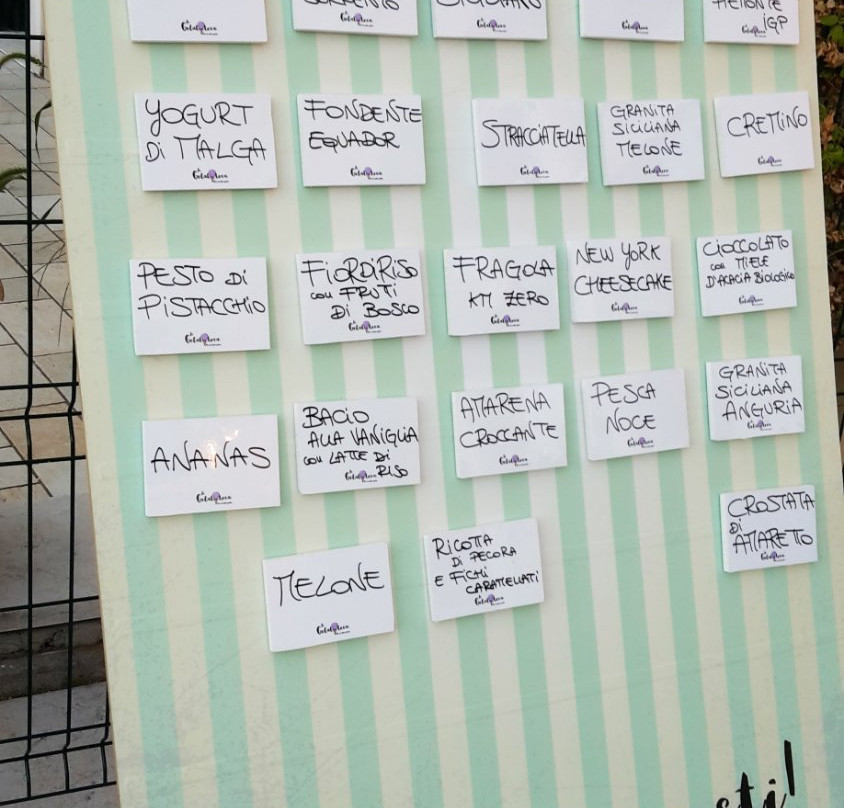 SORRENTO
SICILIANO
PIEMONTE
IGP
YOGURT
DI MALGA
FONDENTE
EQUADOR
STRACCIATELLA
GRANITA
SICILIANA
MELONE
CREMINO
PESTO DI
PISTACCHIO
FIORDIRISO
CON FRUTI
DI BOSCO
FRAGOLA
KM ZERO
NEW YORK
CHEESECAKE
CIOCCOLATO
CON MIELE
D'ACACIA BIOLOGICO
ANANAS
BACIO
ALLA VANIGLIA
CON LATTE DI
RISO
AMARENA
CROCCANTE
PESCA
NOCE
GRANITA
SICILIANA
ANGURIA
MELONE
RICOTTA
DI PECORA
E FICHI
CARAMELLATI
CROSTATA
DI
AMARETTO